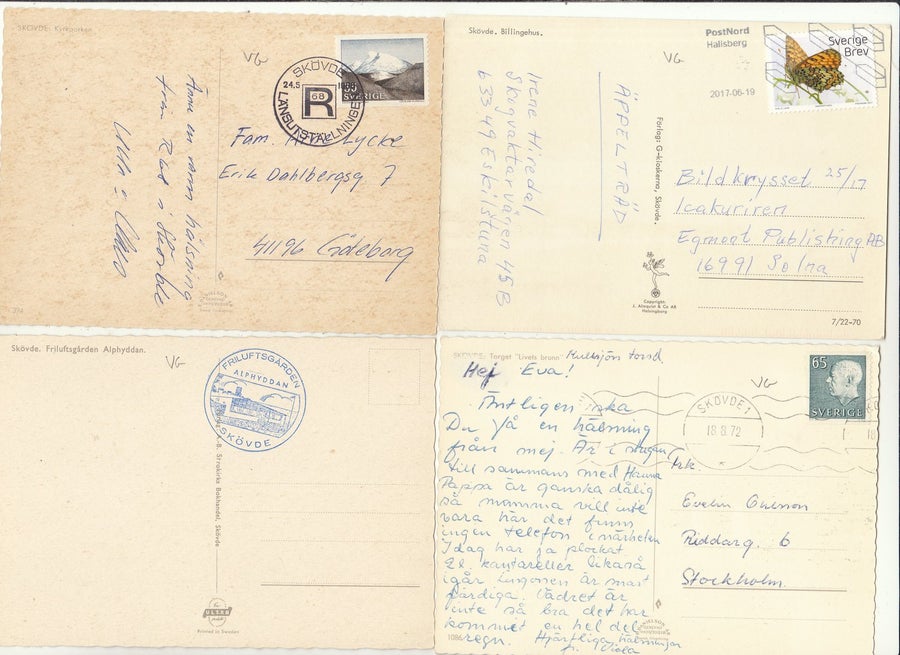 SKÖVDE. Kyrkparken
VG
SKÖVDE
24.5
R
68
LÄNSUTSTÄLLNINGEN
SVERIGE
Ännu en varm hälsning
från
Fam. Lycke
Erik Dahlbergsg 7
41196 Göteborg
Skövde. Billingehus.
VG
PostNord
Hallsberg
2017-06-19
Sverige
Brev
Irene Hiredal
Skogvaktarvägen 45B
633 49 Eskilstuna
ÄPPELTRÄD
Förlag: G-kioskerna, Skövde.
Bildkrysset 25/17
Icakuriren
Egmont Publishing AB
16991 Solna
Copyright:
J. Almqvist & Co AB
Helsingborg
7/22-70
Skövde. Friluftsgården Alphyddan.
VG
FRILUFTSGÅRDEN
ALPHYDDAN
SKÖVDE
Bokhandel, Skövde
ULTRA
Printed in Sweden
SKÖVDE. Torget "Livets brunn"
VG
65
SVERIGE
SKÖVDE 1
18.8.72
Hej Eva!
Äntligen ska
Du få en hälsning
från mej. Är i stugan
till sammans med Hanna
Pappa är ganska dålig
så mamma vill inte
vara här det finns
ingen telefon i närheten
Idag har ja plockat
2l. kantareller likaså
igår Lingonen är snart
färdiga. Vädret är
inte så bra det har
kommet en hel del
regn. Hjärtliga hälsningar
fr. Viola
Frk.
Evelin
Riddarg. 6
Stockholm.
1086